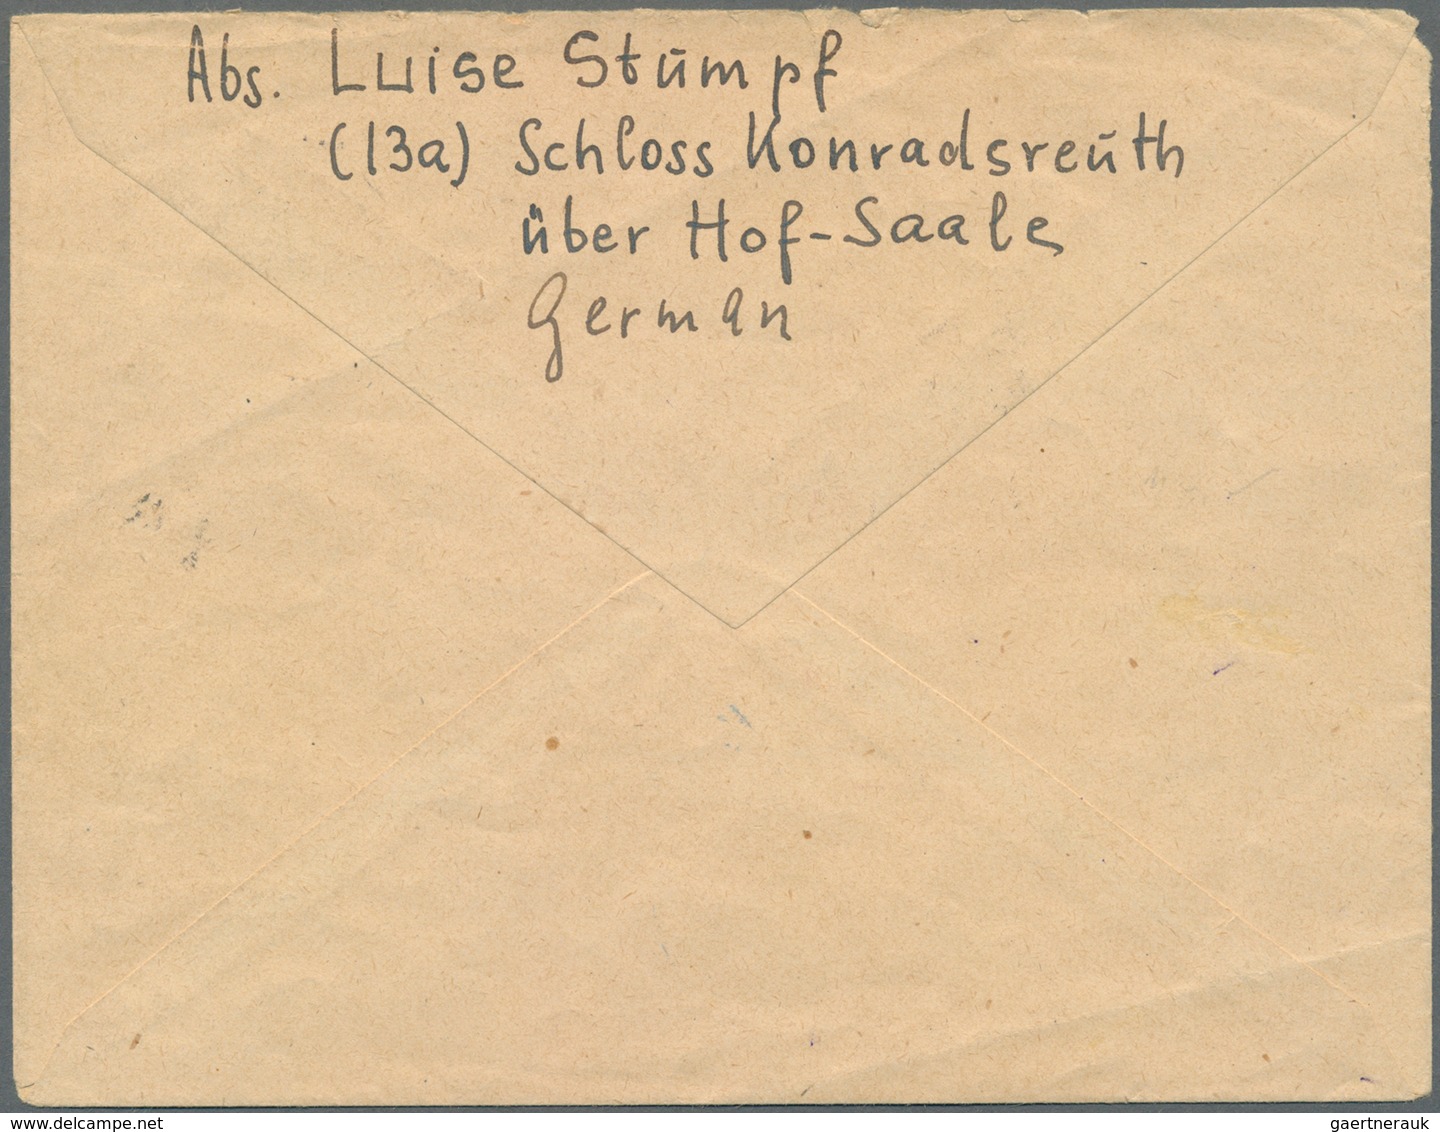 Abs. Luise Stūmpf
(13a) Schloss Konradsreūth
über Hof-Saale
German
delcampe.net
gaertnerauk